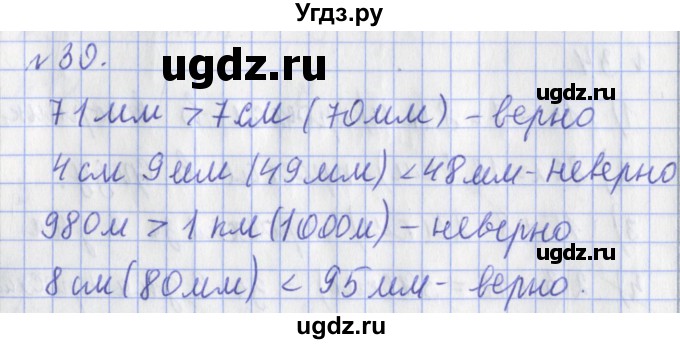 Угдз.ру
№30.
ugdz.ru
71мм > 7см (70мм) – верно
ugdz.ru
4см 9мм (49мм) < 48мм – неверно
980м > 1км (1000м) – неверно
ugdz.ru
8см (80мм) < 95мм – верно.
ugdz.ru